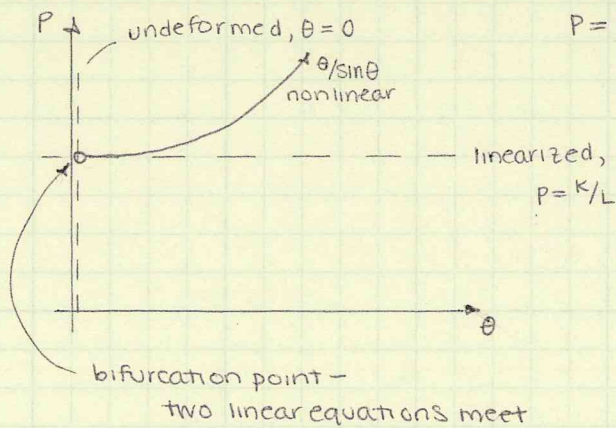 P
undeformed, θ = 0
P =
θ/sinθ
nonlinear
linearized,
P = K/L
θ
bifurcation point -
two linear equations meet